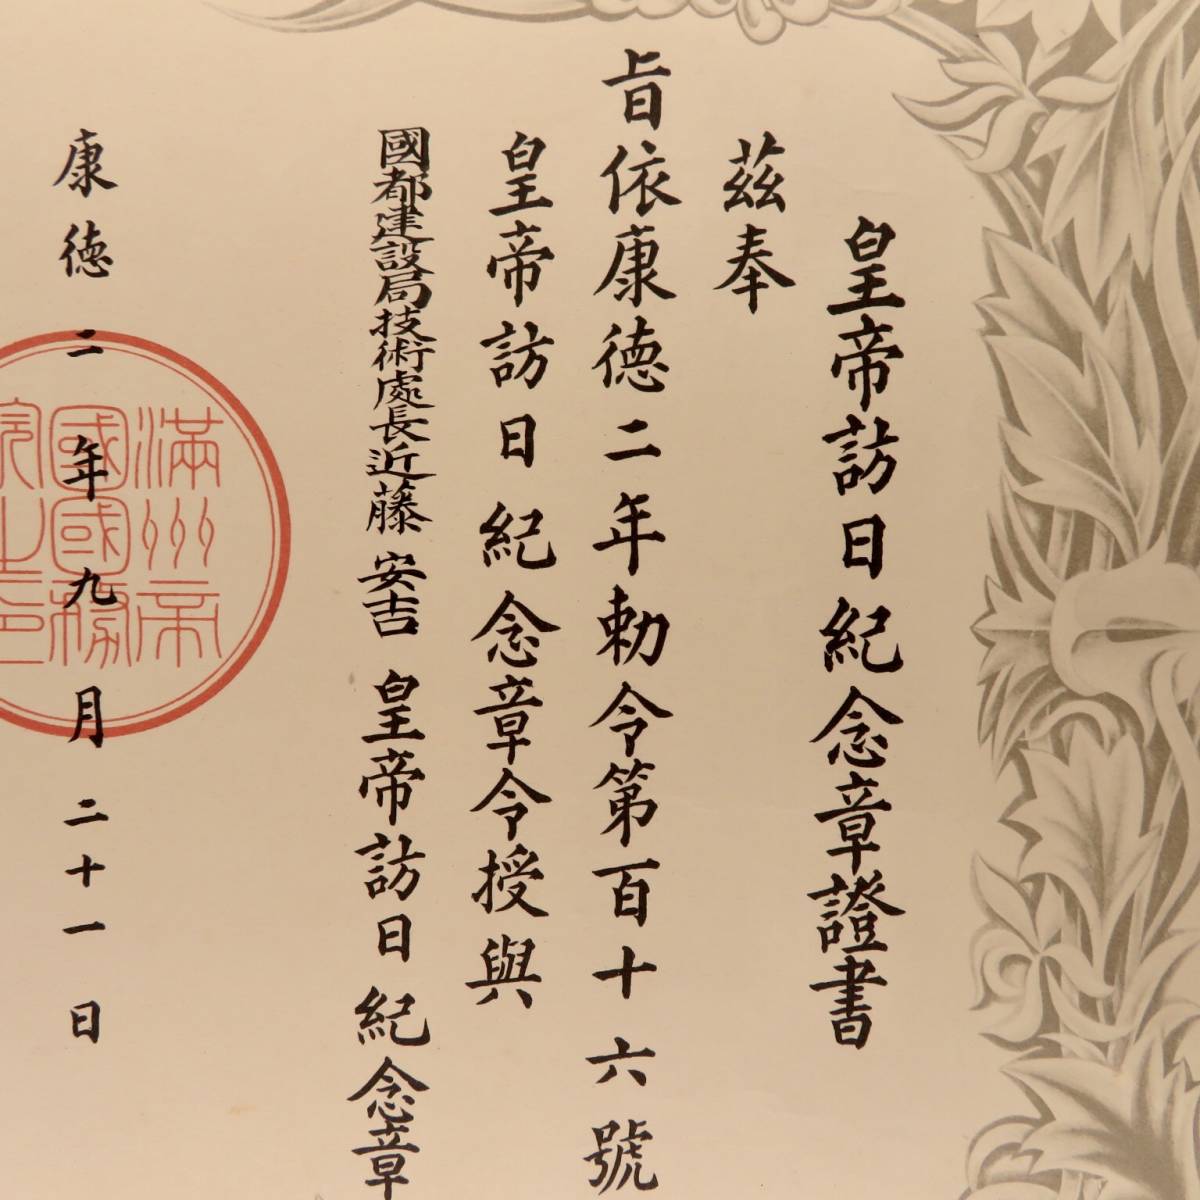 皇帝訪日紀念章證書
茲奉
旨依康德二年勅令第百十六號
皇帝訪日紀念章令授與
國都建設局技術處長近藤安吉 皇帝訪日紀念章
康德二年九月二十一日
滿洲帝
國國務
院之印